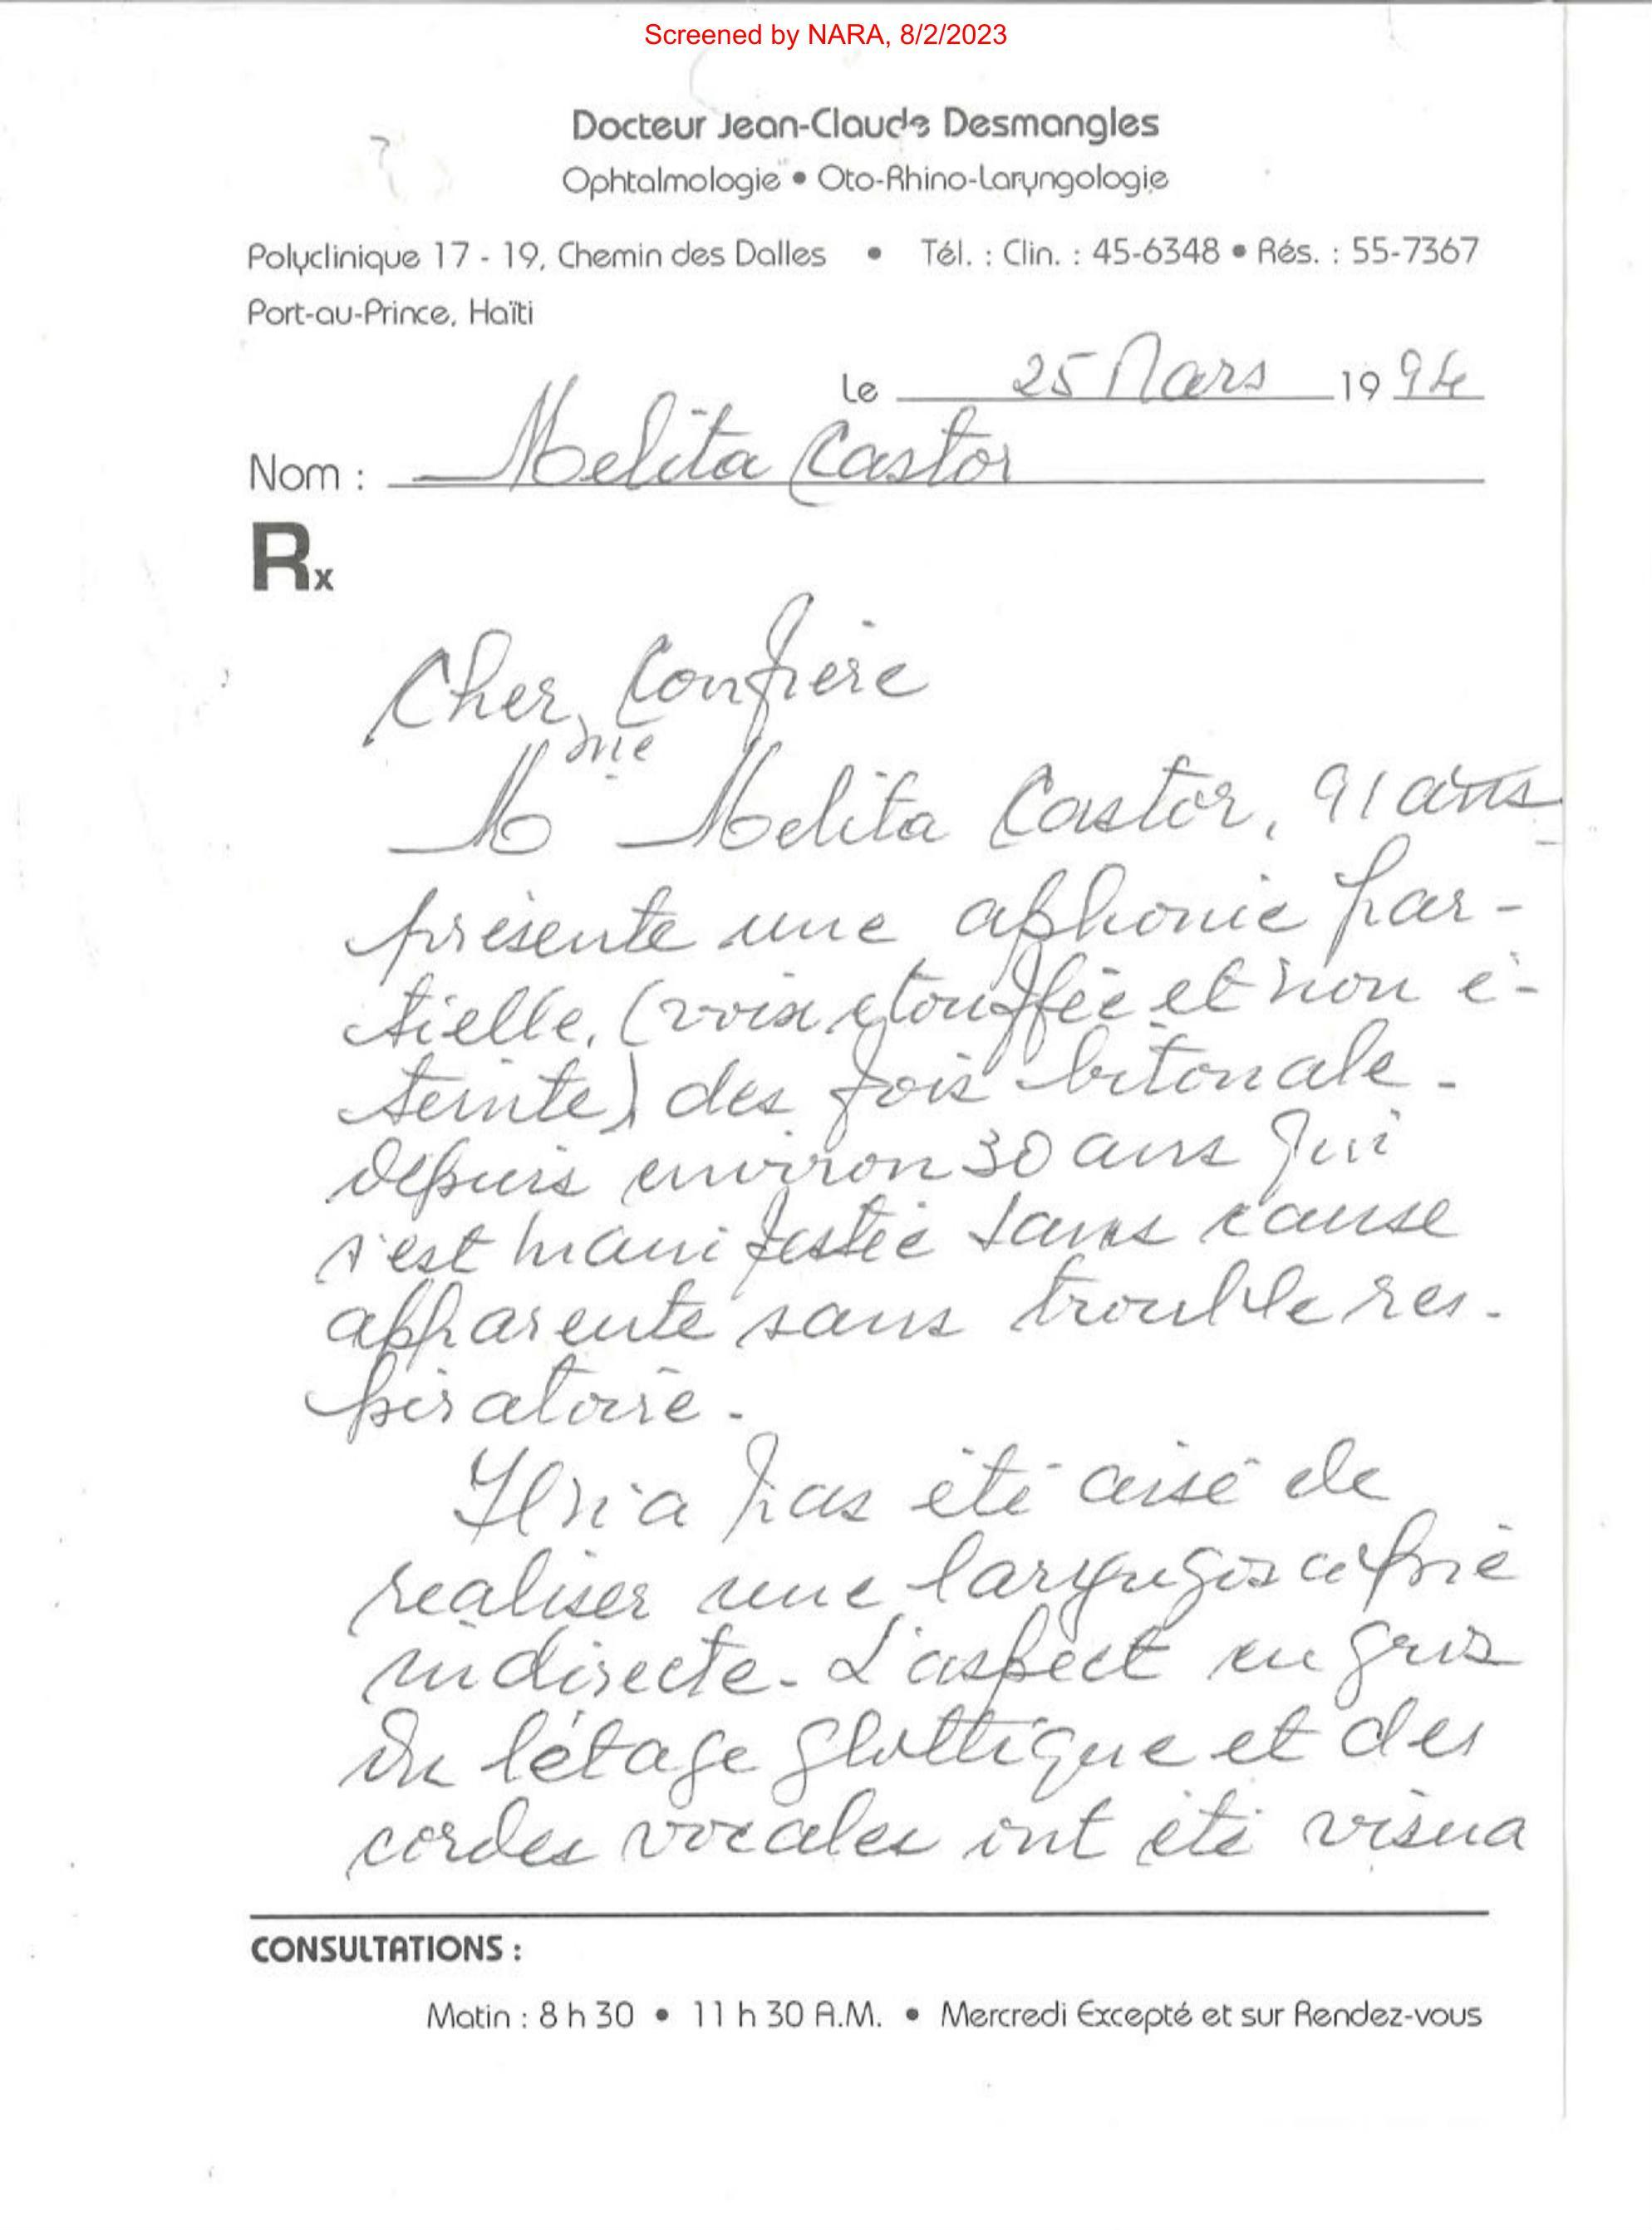 Screened by NARA, 8/2/2023
Docteur Jean-Claude Desmangles
Ophtalmologie • Oto-Rhino-Laryngologie
Polyclinique 17 - 19, Chemin des Dalles • Tél. : Clin. : 45-6348 • Rés. : 55-7367
Port-au-Prince, Haïti
Le 25 Mars 1994
Nom : Melita Castor
Rx
Cher Confrère
Mme Melita Castor, 91 ans
présente une aphonie par-
tielle, (voix étouffée et non é-
teinte) des fois bitonale -
depuis environ 30 ans qui
s'est manifestée sans cause
apparente sans trouble res-
piratoire.
Il n'a pas été aisé de
realiser une laryngoscopie
indirecte - L'aspect en gros
de l'étage glottique et des
cordes vocales ont été visua
CONSULTATIONS :
Matin : 8 h 30 • 11 h 30 A.M. • Mercredi Excepté et sur Rendez-vous